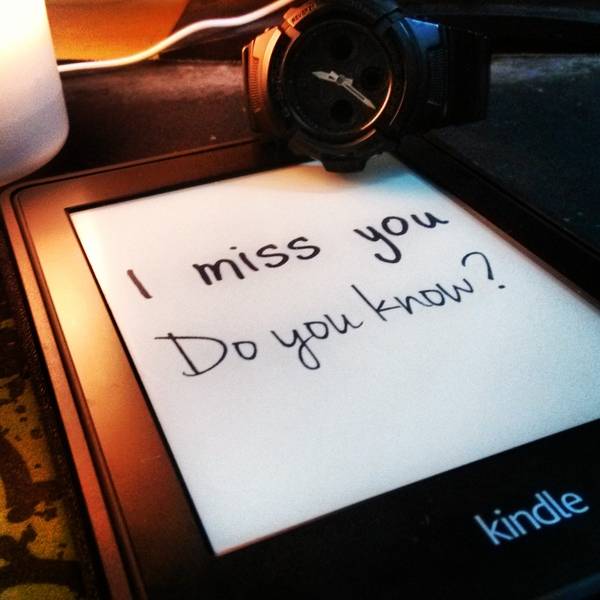 I miss you
Do you know?
kindle